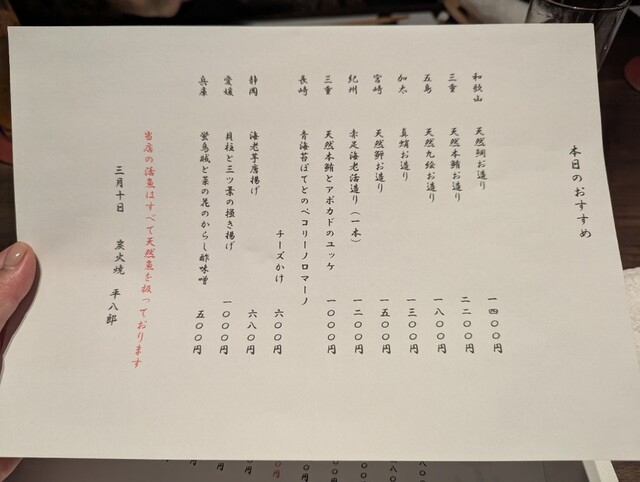 本日のおすすめ
和歌山 天然鯛お造り 一四〇〇円
三重 天然本鮪お造り 二二〇〇円
五島 天然九絵お造り 一八〇〇円
加太 真蛸お造り 一三〇〇円
宮崎 天然鰤お造り 一五〇〇円
紀州 赤足海老活造り(一本) 一二〇〇円
三重 天然本鮪とアボカドのユッケ 一〇〇〇円
長崎 青海苔ぽてとのペコリーノロマーノ
チーズかけ 六〇〇円
静岡 海老芋唐揚げ 六八〇円
愛媛 貝柱と三ツ葉の掻き揚げ 一〇〇〇円
兵庫 蛍烏賊と菜の花のからし酢味噌 五〇〇円
当店の活魚はすべて天然魚を扱っております
三月十日 炭火焼 平八郎